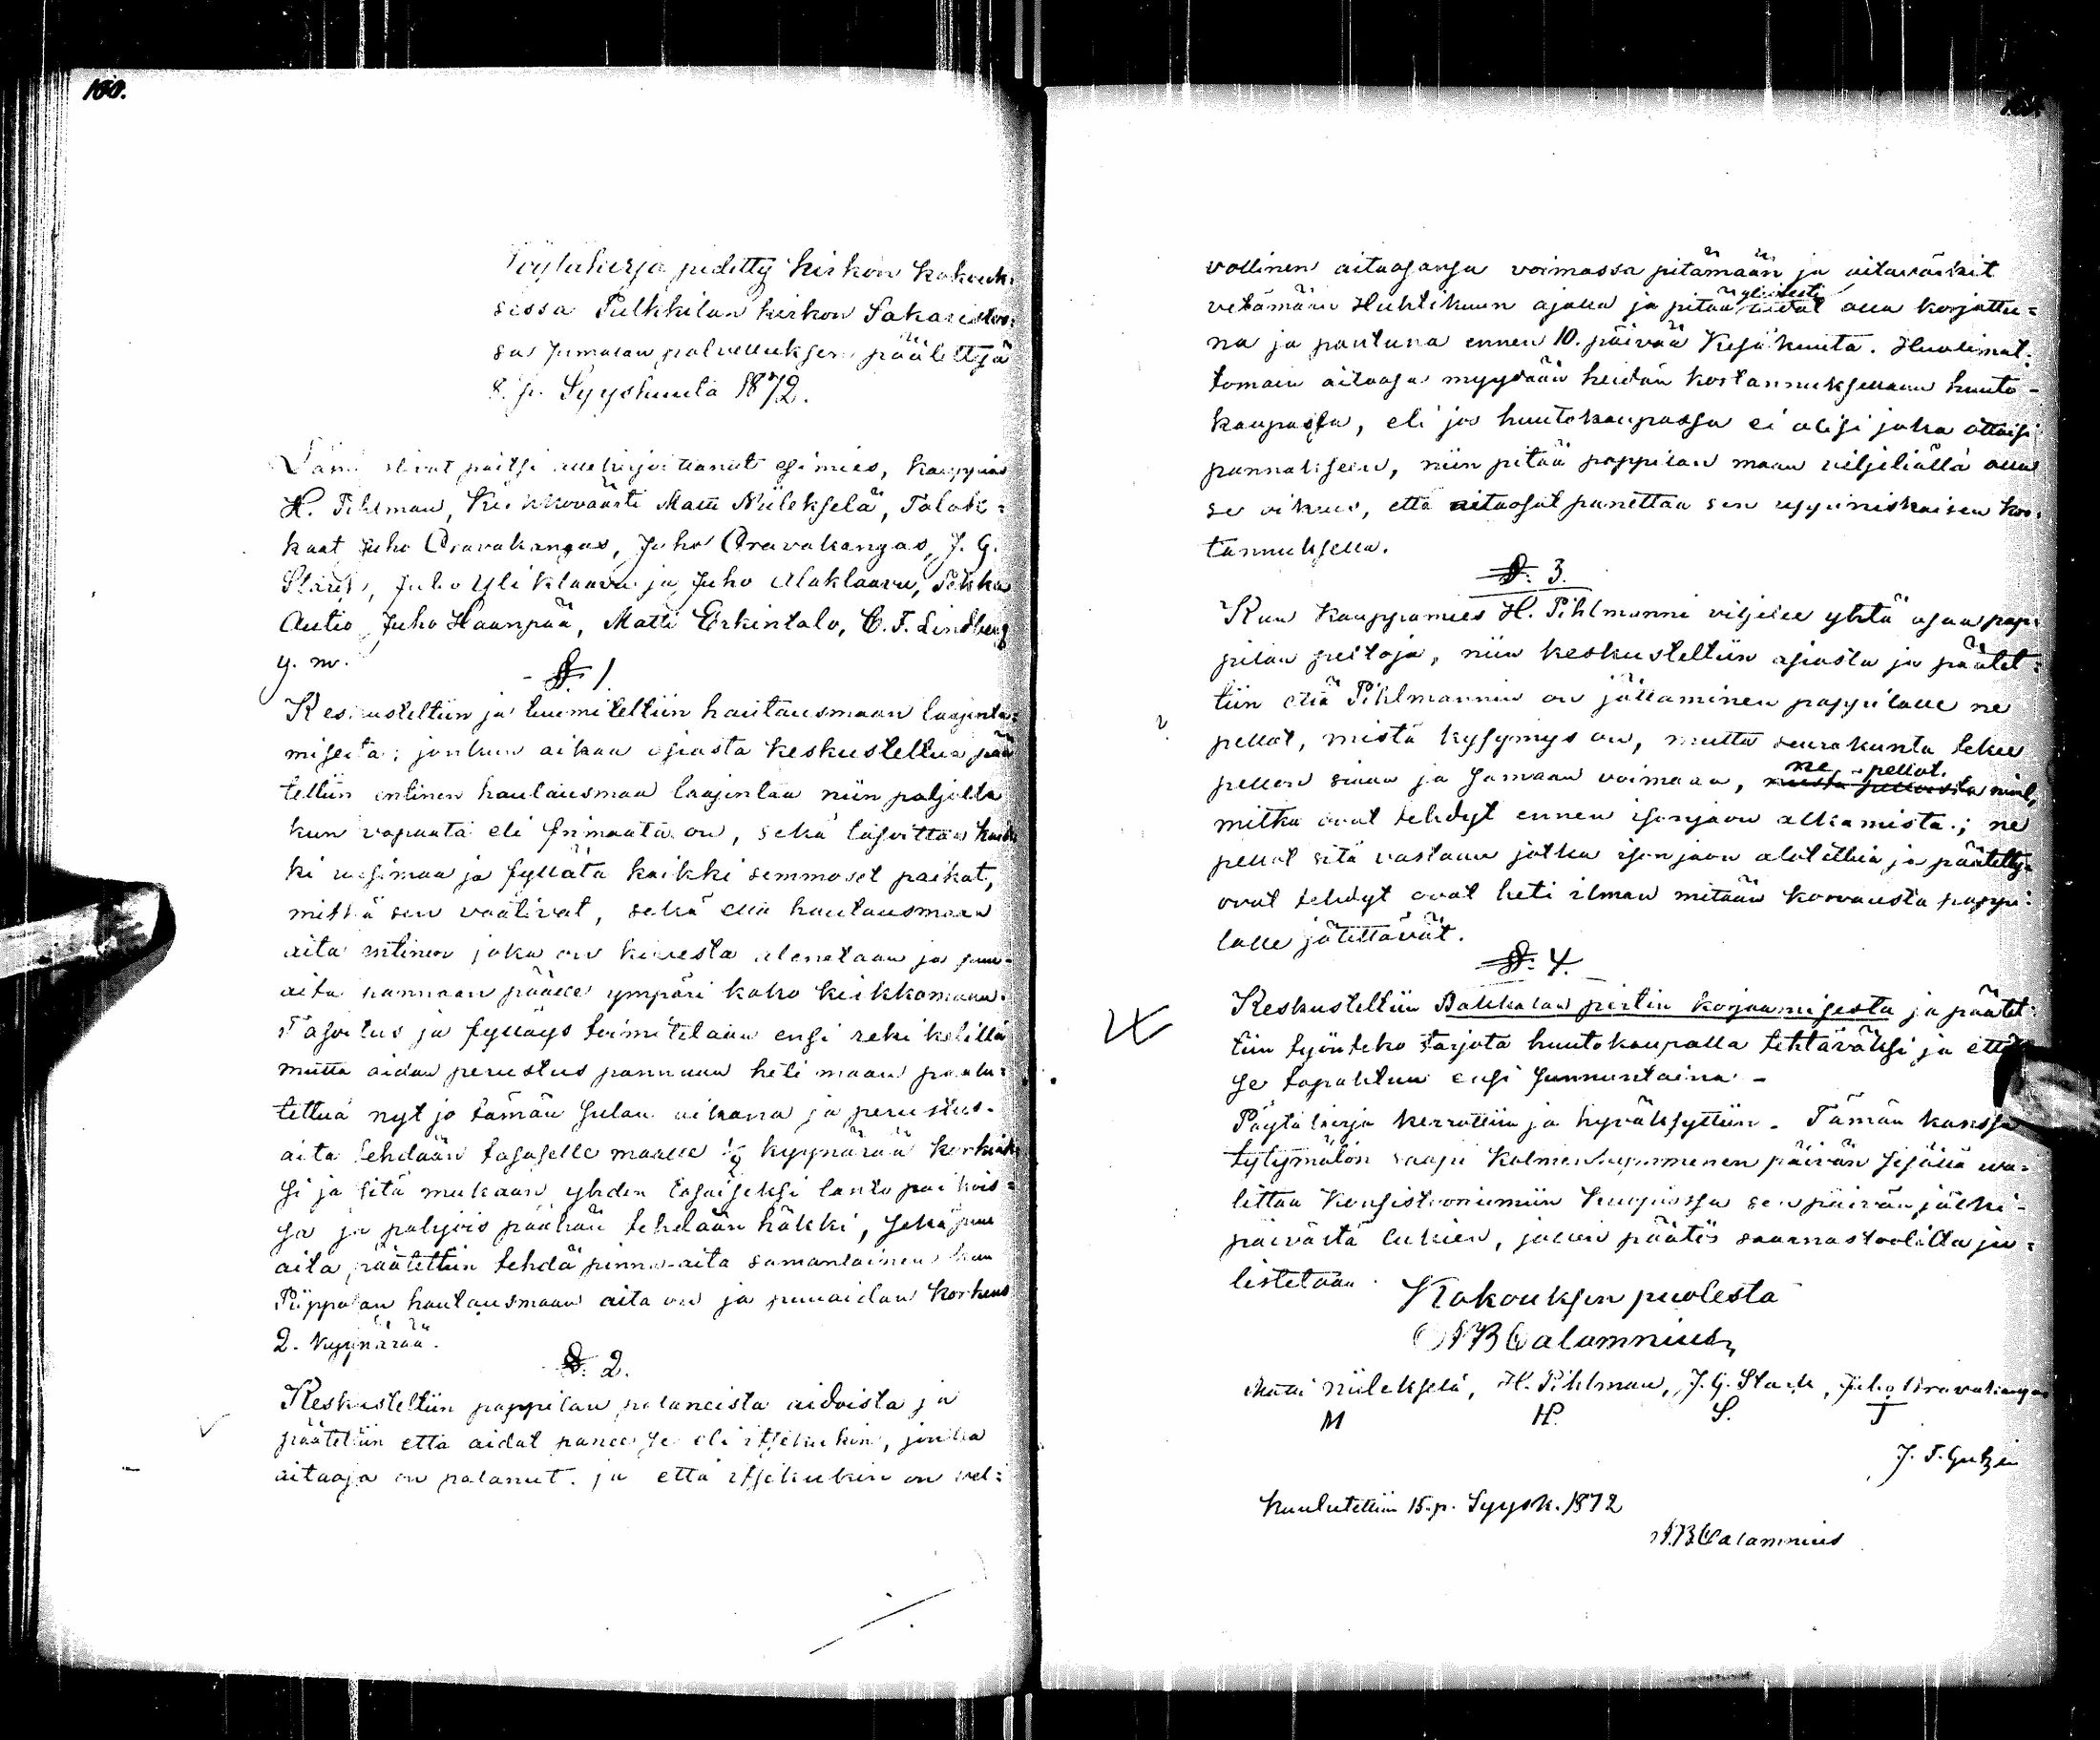 100.
Pöytäkirja pidetty kirkon kokouk=
sessa Pulkkilan kirkon Sakaristos=
sa Jumalan palvelluksen päätettyä
8. p. Syyskuuta 1872.
Läsnä olivat paitsi allekirjoittanut esimies, kauppias
H. Pihlman, Kirkkoväärti Matti Niilekselä, Talok=
kaat Juho Oravakangas, Juho Oravakangas, J. G.
Starck, Juho Yliklaavu ja Juho Alaklaavu, Pekka
Autio, Juho Haanpää, Matti Erkintalo, C. F. Lindberg
y. m.
§. 1.
Keskusteltiin ja tuumiteltiin hautausmaan laajenta=
misesta; jonkun aikaa asiasta keskusteltua pää
tettiin entinen hautausmaa laajentaa niin paljolta
kun vapaata eli frimaata on, sekä tasoittaa kaik
ki uusimaa ja fyllätä kaikki semmoset paikat,
mitkä sen vaativat, sekä että hautausmaan
aita entinen joka on kivestä alenetaan ja puu=
aita pannaan päälle ympäri koko kirkkomaan.
Tasoitus ja fylläys toimitetaan ensi rekikelillä
mutta aidan perustus pannaan heti maan paalu=
tettua nyt jo tämän sulan aikana ja perustus=
aita tehdään tasaselle maalle 1/2 kyynärää korkiak
si ja sitä mukaan yhden tasaiseksi lanto paikois=
sa ja pohjois päähän tehdään häkki, sekä puu
aita päätettiin tehdä pinna-aita samanlainen kun
Piippolan hautausmaan aita on ja puuaidan korkeus
2. kyynärää.
§. 2.
Keskusteltiin pappilan palaneista aidoista ja
päätettiin että aidat panee se eli itsekukin, jonka
aitaosa on palanut. ja että itsekukin on vel=
vollinen aitaosansa voimassa pitämään ja aitaväärkit
vetämään Huhtikuun ajalla ja pitää yleisesti aidat olla korjattu=
na ja pantuna ennen 10. päivää Kesäkuuta. Huolimat=
tomain aitaosa myydään heidän kostannuksellaan huuto=
kaupassa, eli jos huutokaupassa ei olisi joka ottaisi
pannaksensa, niin pitää pappilan maan viljeliällä olla
se oikeus, että aitaosat panettaa sen uppiniskaisen kos=
tannuksella.
§. 3.
Kun Kauppamies H. Pihlmanni viljelee yhtä osaa pap=
pilan peltoja, niin keskusteltiin asiasta ja päätet=
tiin että Pihlmannin on jättäminen pappilalle ne
pellot, mistä kysymys on, mutta seurakunta tekee
pellon siaan ja samaan voimaan, ne pellot. niitä
mitkä ovat tehdyt ennen isonjaon alkamista; ne
pellot sitä vastaan jotka isonjaon alotettua ja päätettyä
ovat tehdyt ovat heti ilman mitään korvausta pappi=
lalle jätettävät.
§. 4.
Keskusteltiin Bakkalan pirtin korjaamisesta ja päätet=
tiin työnteko tarjota huutokaupalla tehtäväksi ja että
se tapahtuu ensi sunnuntaina –
Pöytäkirja kerrottiin ja hyväksyttiin. Tämän kanssa
tytymätön saapi Kolmenkymmenen päivän sisällä wa=
littaa Konsistoriumiin Kuopiossa sen päivän jälki=
päivästä lukien, jolloin päätös saarnastoolilta ju=
listetaan.
Kokouksen puolesta
N B Calamnius
Matti Niilekselä, H. Pihlman, J. G. Starck, Juho Oravakangas
M H. S. J
Kuulutettiin 15. p. Syysk. 1872
N. B. Calamnius